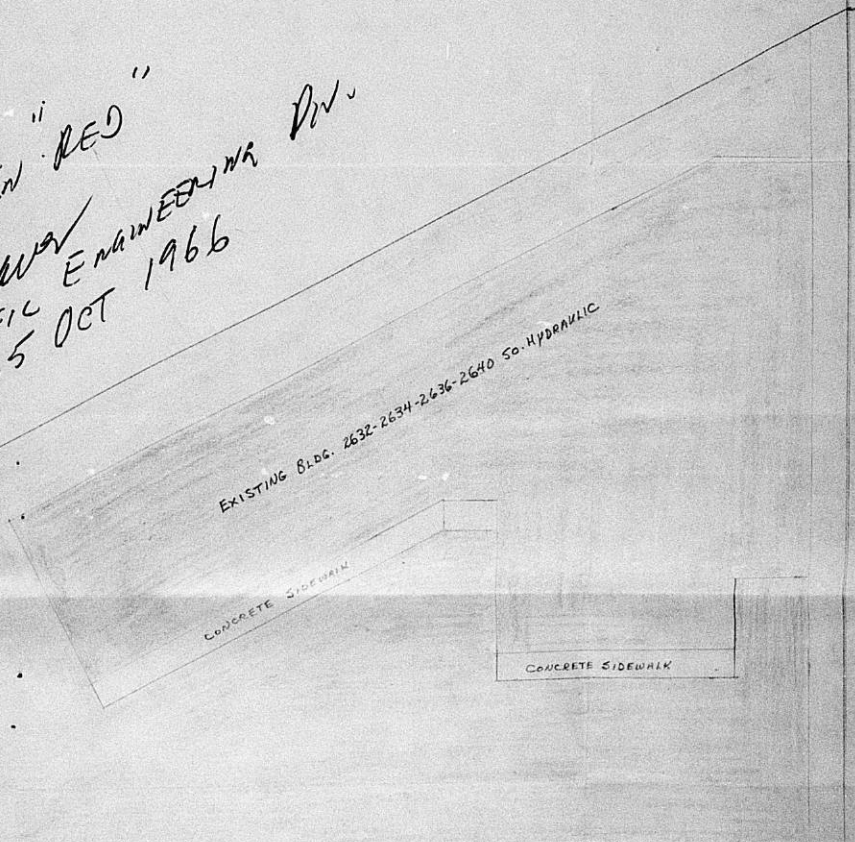 "RED"
ENGINEERING DIV.
5 OCT 1966
EXISTING BLDG. 2632-2634-2636-2640 SO. HYDRAULIC
CONCRETE SIDEWALK
CONCRETE SIDEWALK